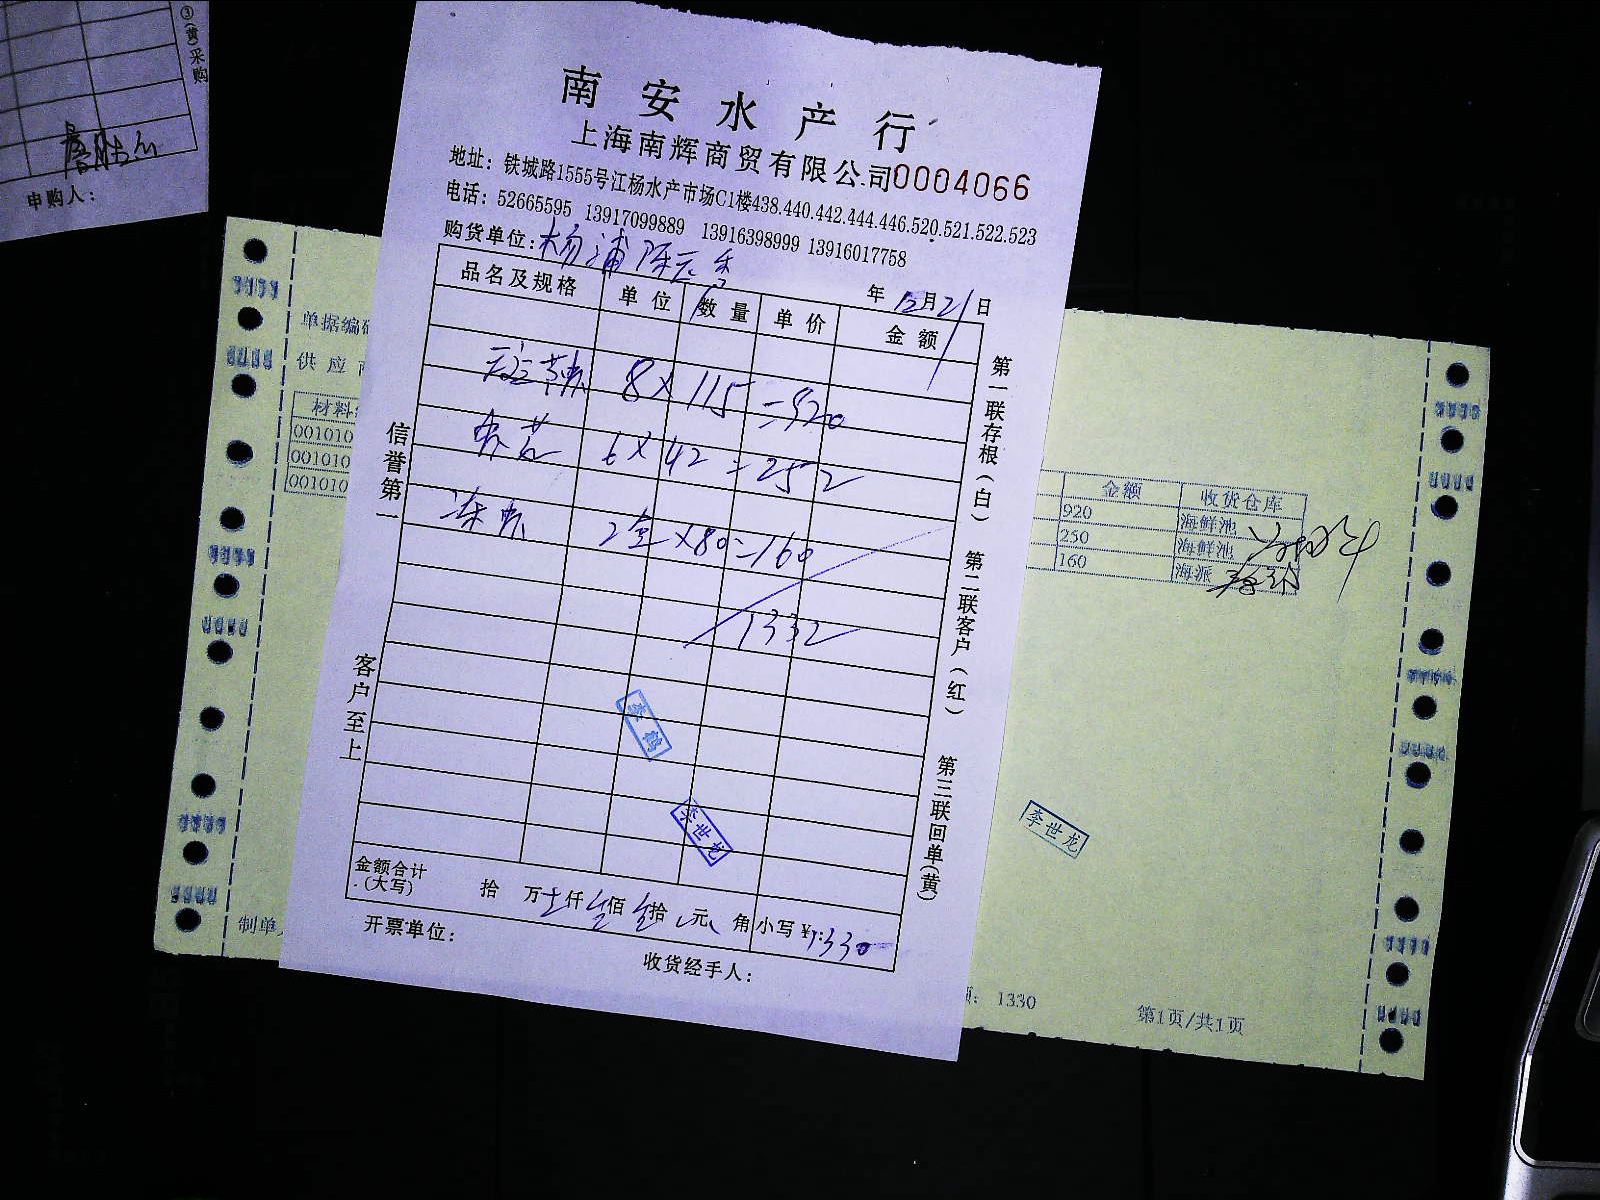 ③(黄)采购
申购人：
南安水产行
上海南辉商贸有限公司0004066
地址：铁城路1555号江杨水产市场C1楼438.440.442.444.446.520.521.522.523
电话：52665595 13917099889 13916398999 13916017758
购货单位：杨浦
年12月21日
品名及规格 单位 数量 单价 金额
8×115=920
6×42=252
2盒×80=160
1332
信誉第一
客户至上
第一联存根(白)
第二联客户(红)
第三联回单(黄)
李鹤
李世龙
金额合计(大写) 拾 万 仟 佰 拾 元 角 小写¥1330
开票单位：
收货经手人：
单据编
供应
材料
001010
001010
001010
制单
金额 收货仓库
920 海鲜池
250 海鲜池
160 海派
李世龙
1330
第1页/共1页